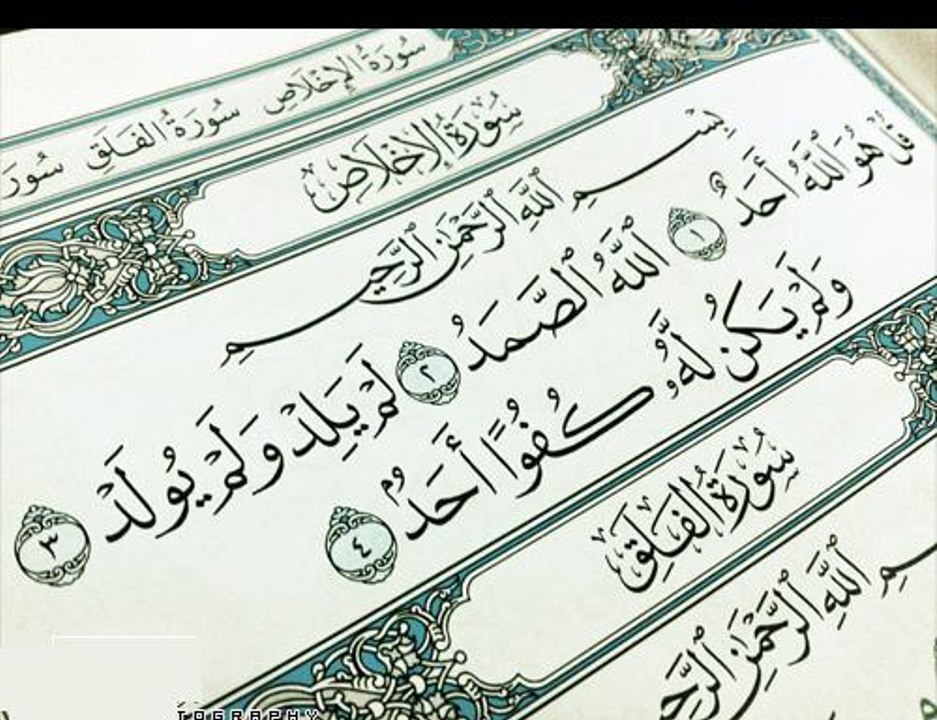 سُورَةُ الإِخْلَاصِ سُورَةُ الفَلَقِ سُورَ
سُورَةُ الإِخْلَاصِ
بِسْمِ ٱللَّهِ ٱلرَّحْمَٰنِ ٱلرَّحِيمِ
قُلْ هُوَ ٱللَّهُ أَحَدٌ ١ ٱللَّهُ ٱلصَّمَدُ ٢ لَمْ يَلِدْ وَلَمْ يُولَدْ ٣
وَلَمْ يَكُن لَّهُۥ كُفُوًا أَحَدٌۢ ٤
سُورَةُ الفَلَقِ
ـمِ ٱللَّهِ ٱلرَّحْمَٰنِ ٱلرَّحِ
TOGRAPHY